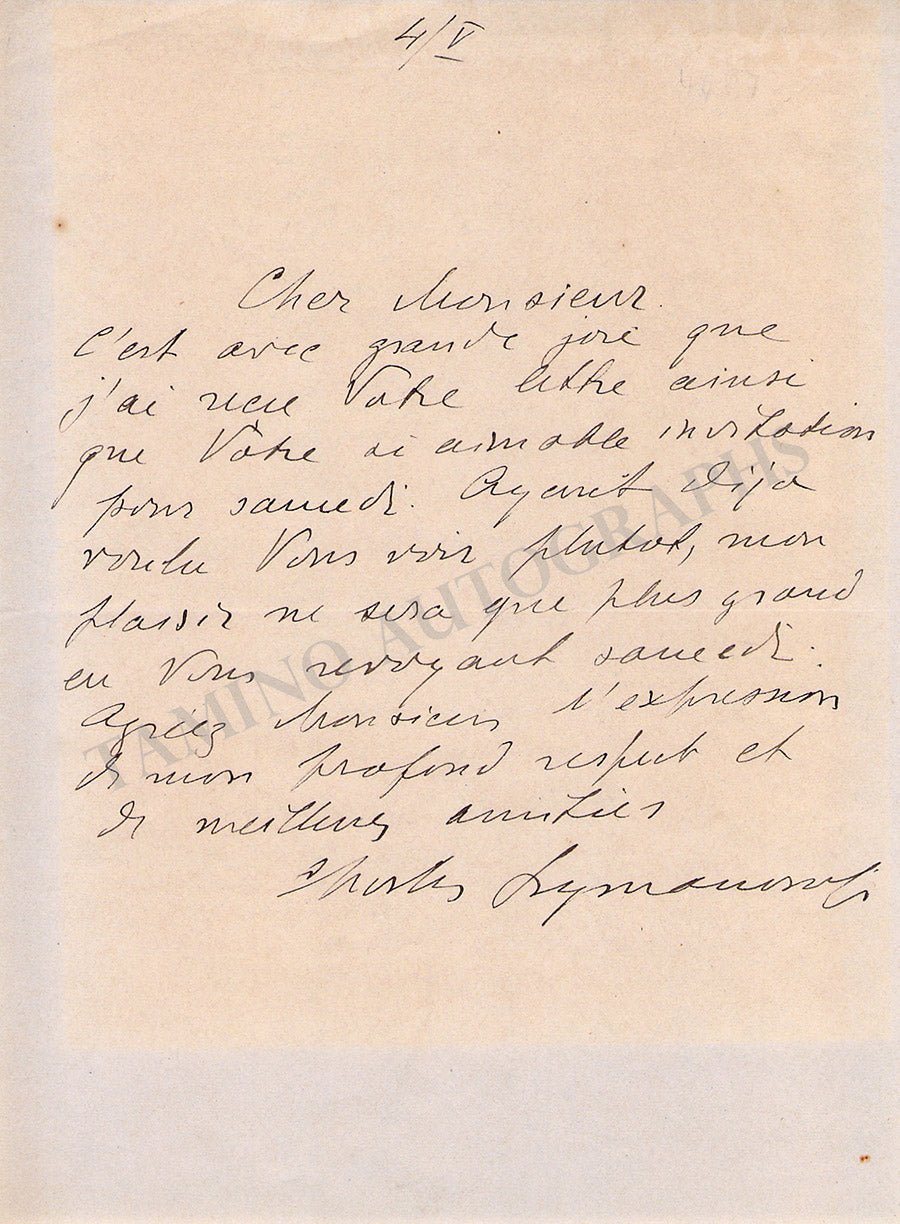 4/V
Cher Monsieur.
C'est avec grande joie que
j'ai reçue Votre lettre ainsi
que Votre si aimable invitation
pour samedi. Ayant déja
voulu Vous voir plutot, mon
plaisir ne sera que plus grand
en Vous revoyant samedi.
Agréez Monsieur l'expression
de mon profond respect et
de meilleures amitiés
Charles Szymanowski
TAMINO AUTOGRAPHS